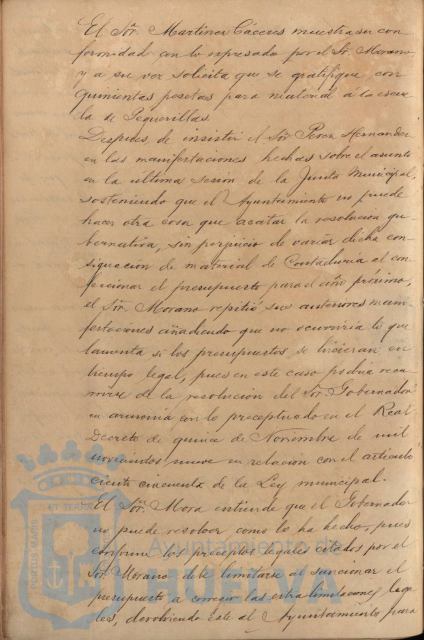 El Sr. Martinez Cáceres muestra su con
formidad con lo expresado por el Sr. Morano
y a su vez solicita que se gratifique con
quinientas pesetas para material á la escue
la de Peguerillas.
Despues de insistir el Sr. Perez Hernandez
en las manifestaciones hechas sobre el asunto
en la última sesion de la Junta Municipal,
sosteniendo que el Ayuntamiento no puede
hacer otra cosa que acatar la resolucion gu
bernativa, sin perjuicio de variar dicha con
signacion de material de Contaduria al con
feccionar el presupuesto para el año próximo,
el Sr. Morano repitió sus anteriores mani
festaciones añadiendo que no ocurriria lo que
lamenta si los presupuestos se hicieran en
tiempo legal, pues en este caso podria recu
rrirse de la resolucion del Sr. Gobernador
en armonia con lo preceptuado en el Real
Decreto de quince de Noviembre de mil
novecientos nueve en relacion con el articulo
ciento cincuenta de la Ley municipal.
El Sr. Mora entiende que el Gobernador
no puede resolver como lo ha hecho, pues
conforme los preceptos legales citados por el
Sr. Morano debe limitarse al sancionar el
presupuesto a corregir las extralimitaciones lega
les, devolviendo éste al Ayuntamiento para
PORTUS MARIS ET TERRAE
Ayuntamiento de
HUELVA